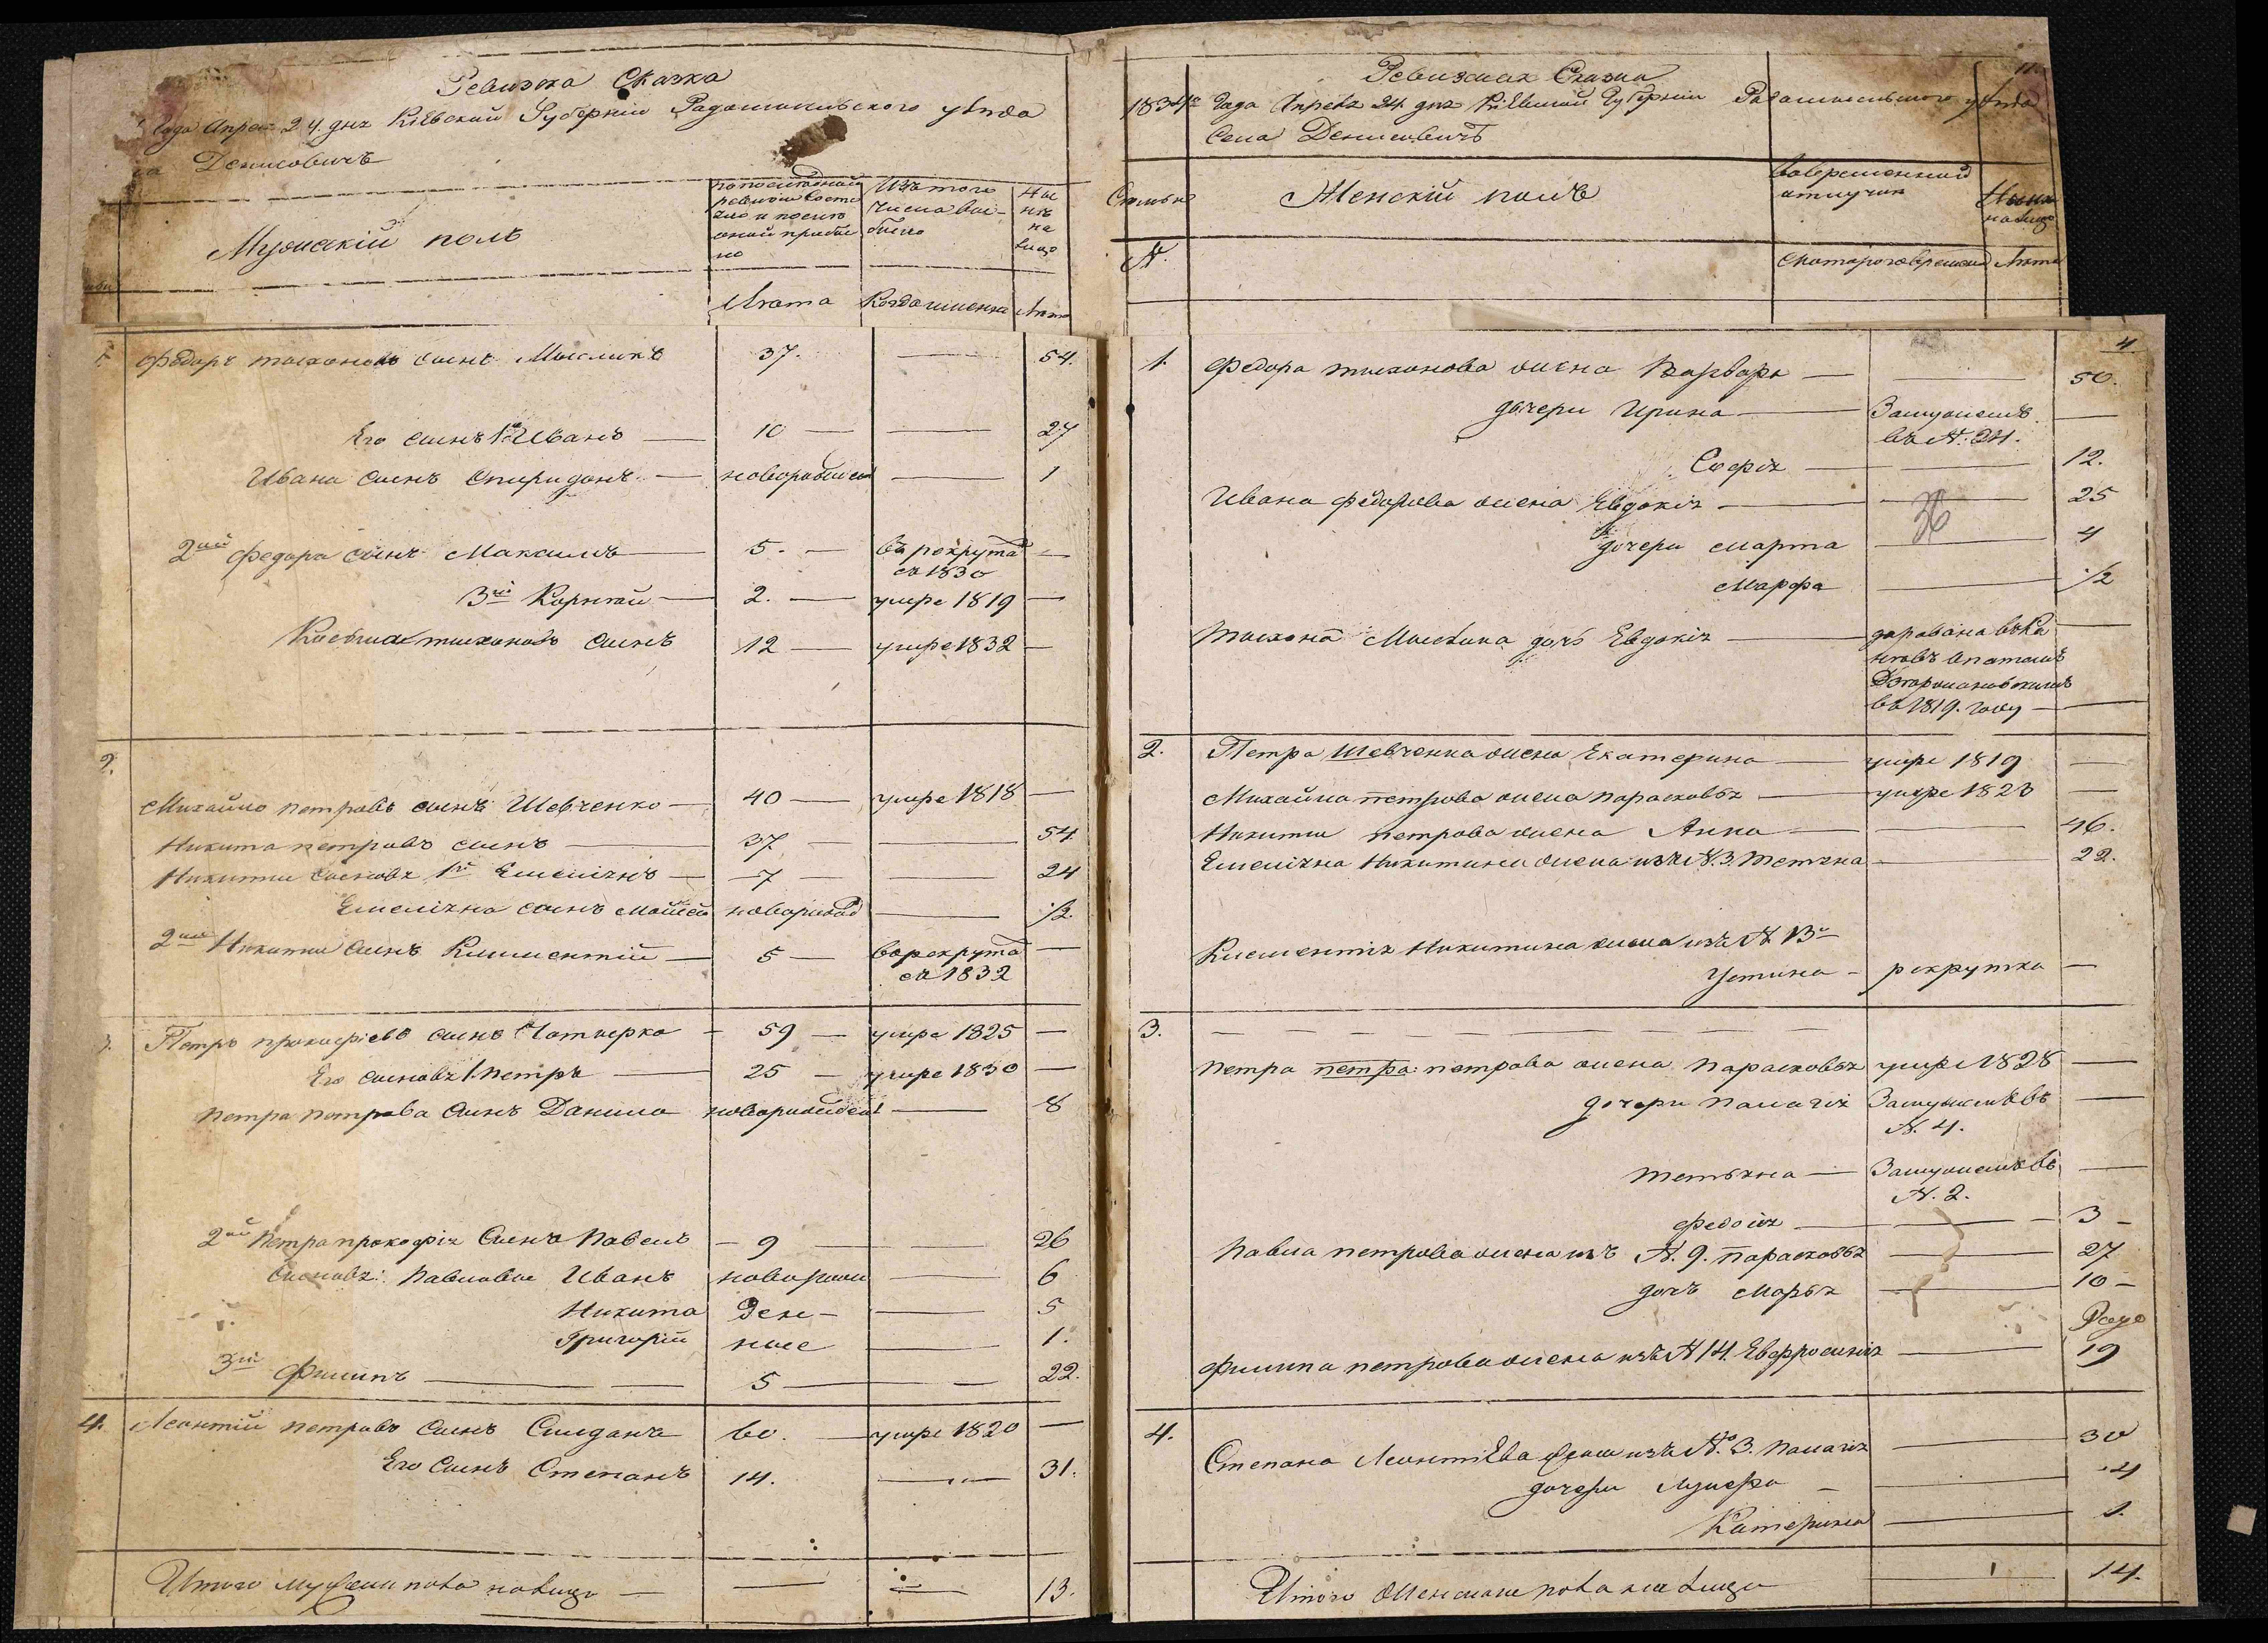 Ревизка Сказка
Года Апреля 24. дня Кіевской Губерніи Радомысльского уѣзда
Денисовичъ
Мужескій полъ
по последней ревизіи состояло и после оной прибыло
Изъ того числа выбыло
Ныне на лицо
Лѣта Когда именно Лѣта
1. Федоръ тихоновъ сынъ Мысликъ 37. — 54.
Его сынъ 1й Иванъ — 10 — — 27
Ивана сынъ Спиридонъ — новорожден — 1
2ий Федора сынъ Максимъ — 5. — въ рекрута —
съ 1830
3ій Корнѣй — 2. — умре 1819 —
тихоновъ сынъ 12 — умре 1832 —
2.
Михайло петровъ сынъ Шевченко — 40 — умре 1818 —
Никита петровъ сынъ — 37 — — 54
Никиты сыновя 1й Емеліянъ — 7 — — 24
Емеліяна сынъ Мойсей новорожд — 1/2
2ий Никиты сынъ Климентій — 5 — в рекрута —
съ 1832
3. Петръ прокофіевъ сынъ — 59 — умре 1825 —
Его сыновя 1. петръ — 25 — умре 1830 —
петра петрова сынъ Данило новорожден — 8
2ой Петра прокофія Сынъ Павелъ — 9 — — 26
Сыновя: Павловы Иванъ новорож — 6
Никита ден — 5
Григорій ные — 1.
3ій Филипъ — 5 — — 22.
4. Леонтій петровъ Сынъ 60. — умре 1820 —
Его Сынъ Степанъ 14. — 31.
Итого мужеска пола налицо — — — 13.
11.
Ревизская Сказка
1834го Года Апреля 24 дня Кіевской Губерніи Радомысльского уѣзда
Села Денисовичъ
Семьи
Женскій полъ
Во временной отлучки
Ныне налицо
№.
С которого времени Лѣта
4
1. Федора тихонова жена Варвара — — 50.
дочери Ирина — Замужемъ —
въ №. 24.
Софія — — 12.
Ивана Федорова жена Евдокія — — 25
36
дочери Марта — 4
Марфа — 1/2
Тихона Мыслика дочь Евдокія —
въ 1819. году —
2. Петра Шевченка жена Екатерина — умре 1819 —
Михайла петрова жена парасковья — умре 1823 —
Никиты петрова жена Анна — — 46.
Емеліяна Никитина жена изъ №.3. Тетяна — 22.
Климентія Никитина жена изъ № 13
Устина — рекрутка —
3. — — — — — —
Петра петра: петрова жена парасковья умре 1828 —
дочери палагія Замужемъ въ —
№. 4.
тетьяна — Замужемъ въ —
№. 2.
федосія — — 3 —
Павла петрова жена изъ №. 9. парасковья — 27
дочь Марья — 10 —
Филипа петрова жена изъ № 14. Евфросинія — 19
4.
Степана Леонтіева жена изъ №. 3. палагія — 30
дочери Лукера — 4
Катерина — 1.
Итого Женскаго пола на лицо — 14.